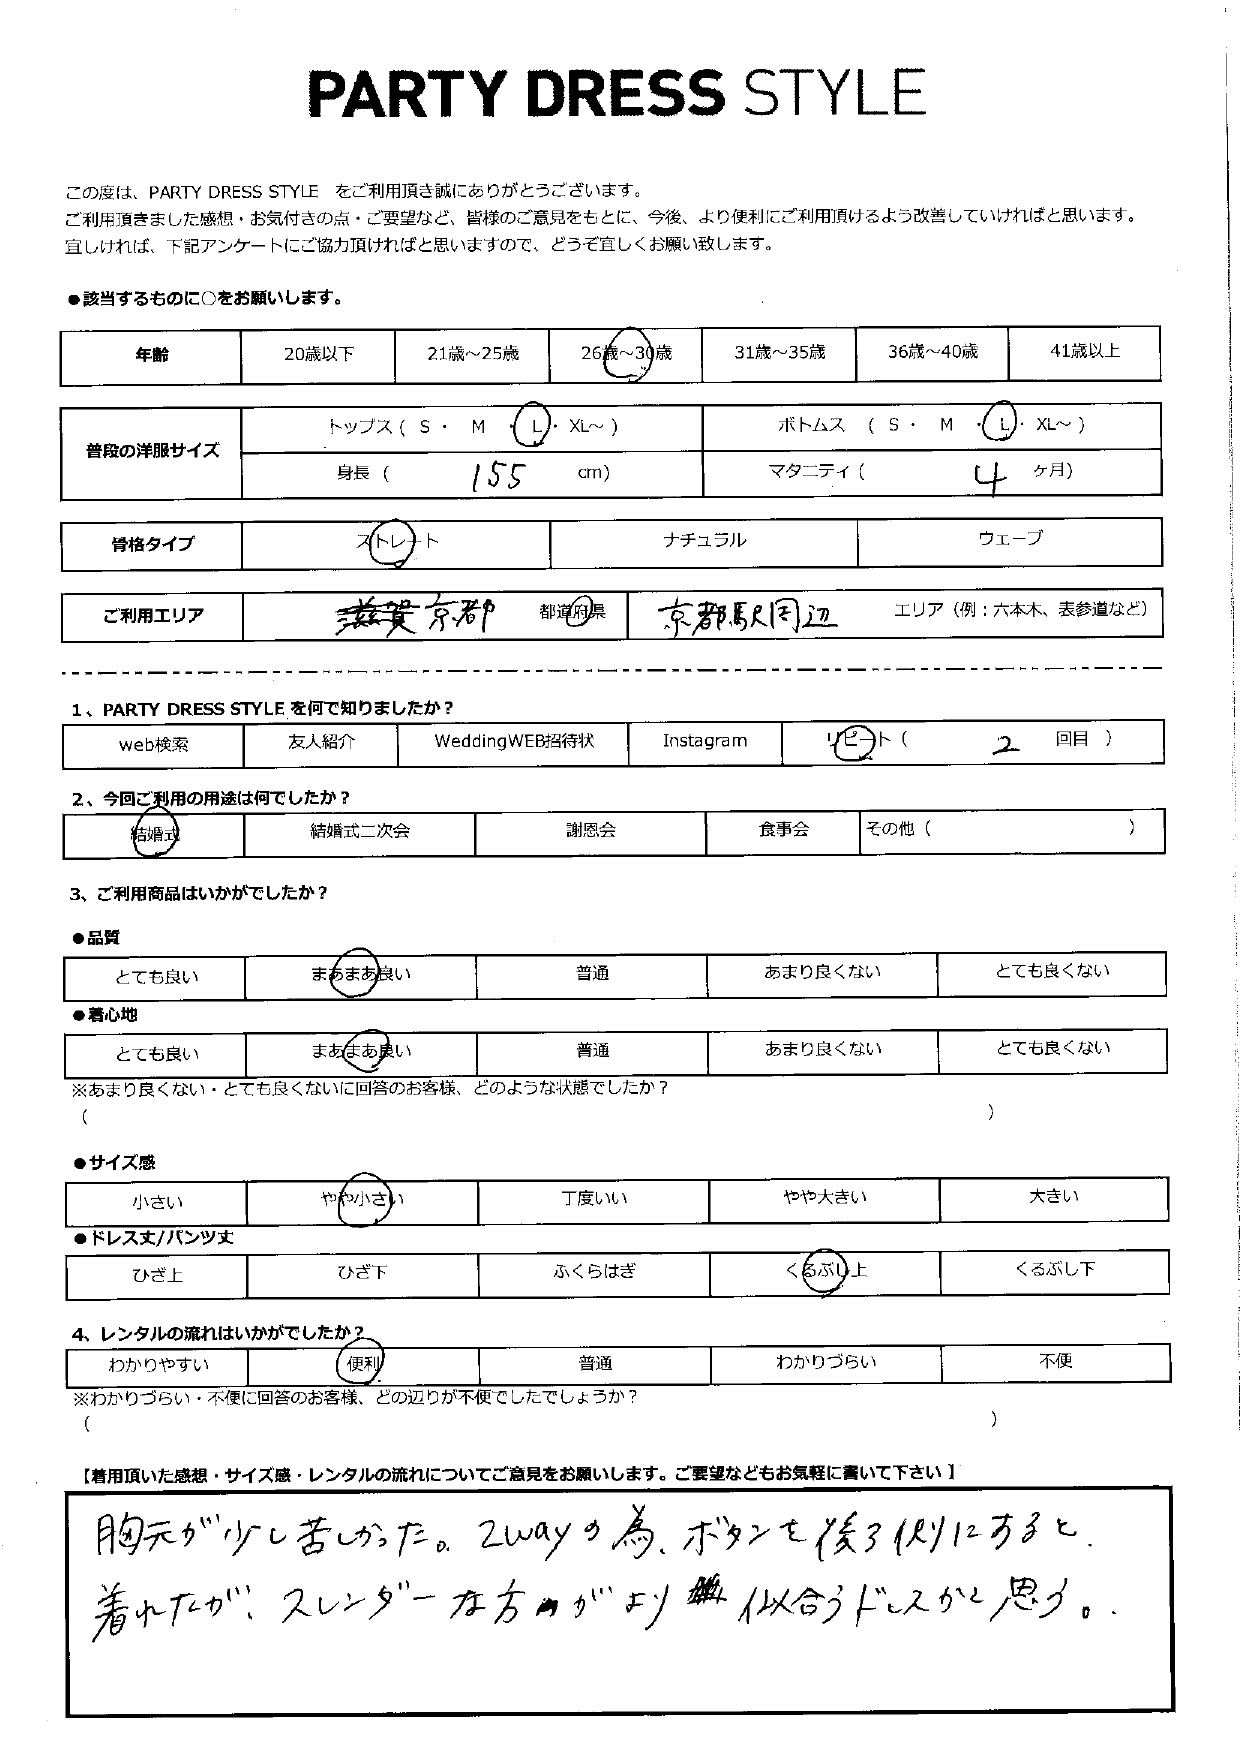 PARTY DRESS STYLE
この度は、PARTY DRESS STYLE をご利用頂き誠にありがとうございます。
ご利用頂きました感想・お気付きの点・ご要望など、皆様のご意見をもとに、今後、より便利にご利用頂けるよう改善していければと思います。
宜しければ、下記アンケートにご協力頂ければと思いますので、どうぞ宜しくお願い致します。
●該当するものに○をお願いします。
年齢 20歳以下 21歳～25歳 26歳～30歳 31歳～35歳 36歳～40歳 41歳以上
普段の洋服サイズ トップス（ S ・ M ・ L ・ XL～ ） ボトムス （ S ・ M ・ L ・ XL～ ）
身長（ 155 cm） マタニティ（ 4 ヶ月）
骨格タイプ ストレート ナチュラル ウェーブ
ご利用エリア 滋賀 京都 都道府県 京都駅周辺 エリア（例：六本木、表参道など）
1、PARTY DRESS STYLE を何で知りましたか？
web検索 友人紹介 WeddingWEB招待状 Instagram リピート（ 2 回目 ）
2、今回ご利用の用途は何でしたか？
結婚式 結婚式二次会 謝恩会 食事会 その他（ ）
3、ご利用商品はいかがでしたか？
●品質
とても良い まあまあ良い 普通 あまり良くない とても良くない
●着心地
とても良い まあまあ良い 普通 あまり良くない とても良くない
※あまり良くない・とても良くないに回答のお客様、どのような状態でしたか？
（ ）
●サイズ感
小さい やや小さい 丁度いい やや大きい 大きい
●ドレス丈/パンツ丈
ひざ上 ひざ下 ふくらはぎ くるぶし上 くるぶし下
4、レンタルの流れはいかがでしたか？
わかりやすい 便利 普通 わかりづらい 不便
※わかりづらい・不便に回答のお客様、どの辺りが不便でしたでしょうか？
（ ）
【着用頂いた感想・サイズ感・レンタルの流れについてご意見をお願いします。ご要望などもお気軽に書いて下さい】
胸元が少し苦しかった。2wayの為、ボタンを後ろ側にすると、
着れたが、スレンダーな方がより似合うドレスかと思う。